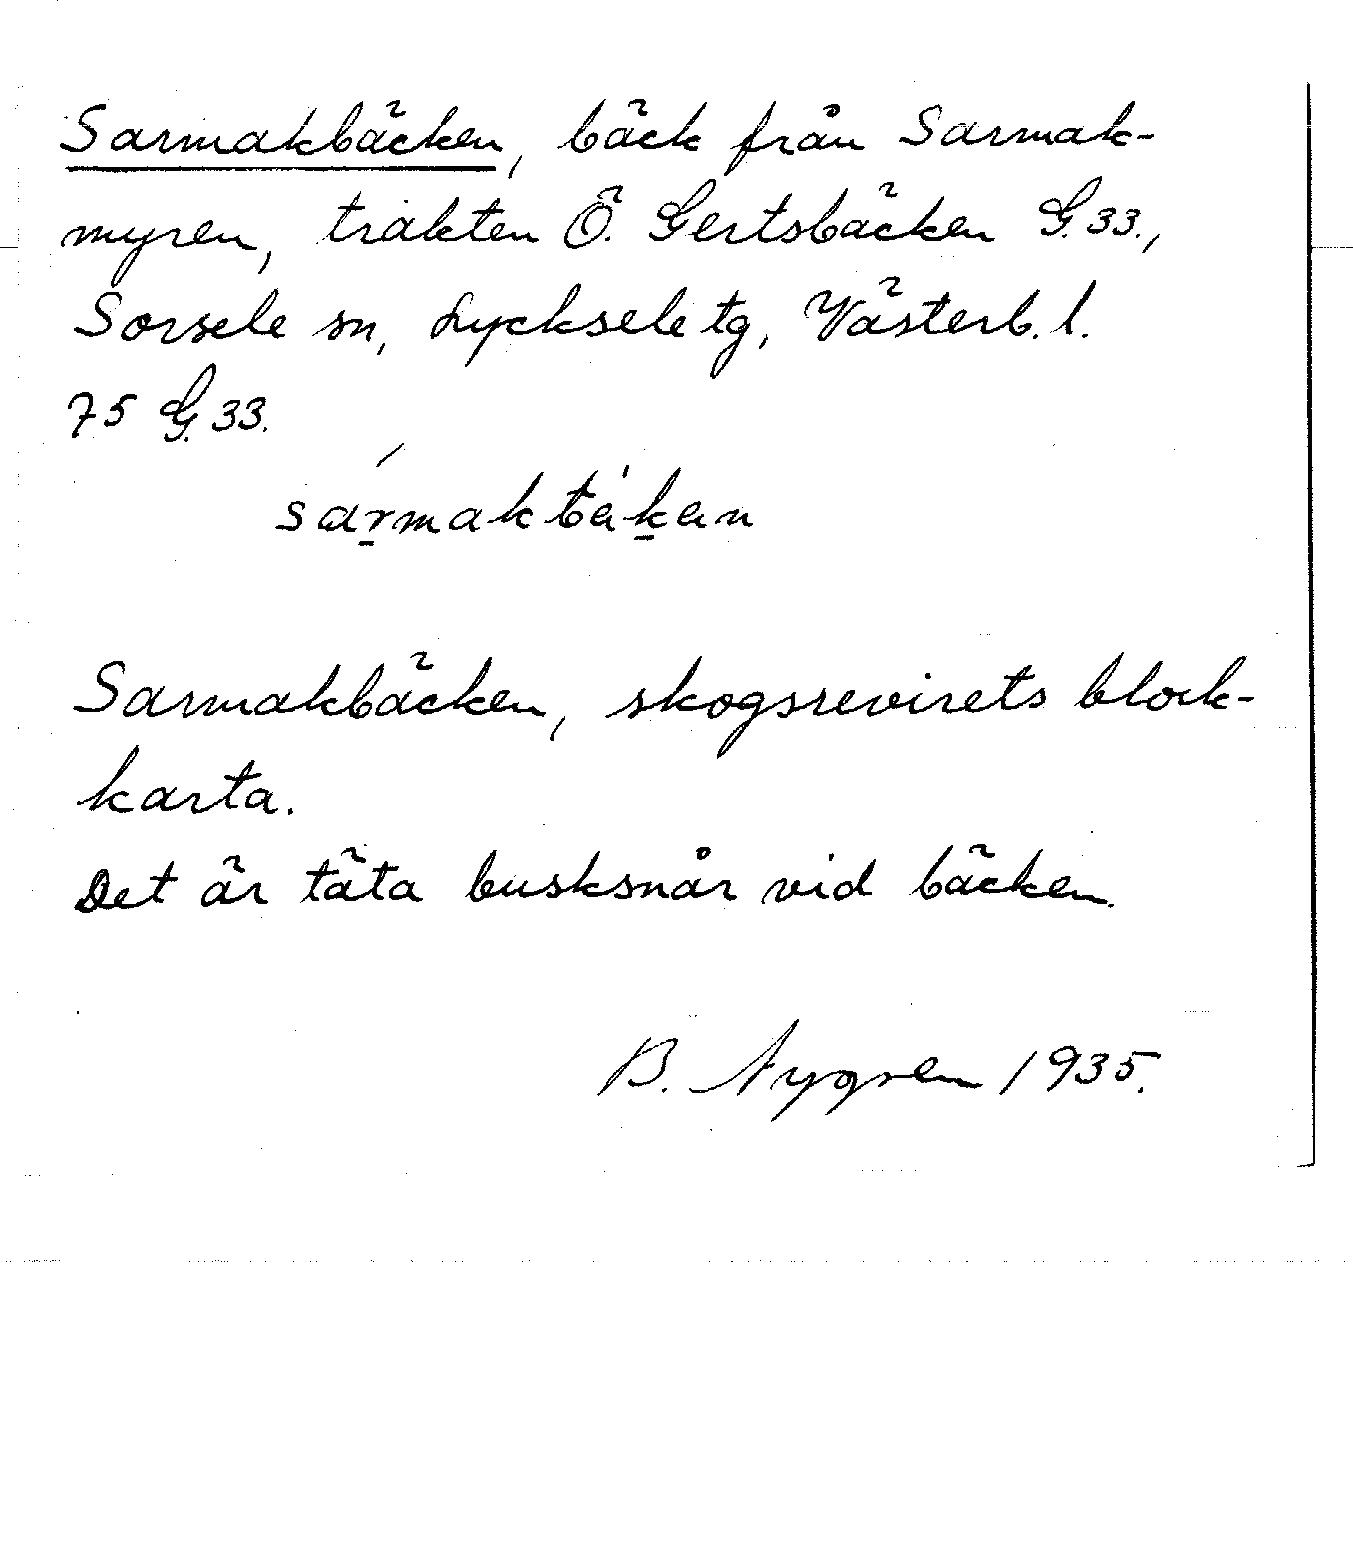 Sarmakbäcken, bäck från Sarmak-
myren, trakten Ö. Gertsbäcken G.33.,
Sorsele sn, Lycksele tg, Västerb. l.
75 G.33.
sármakbekan
Sarmakbäcken, skogsrevirets block-
karta.
Det är täta busksnår vid bäcken.
B. Nygren 1935.